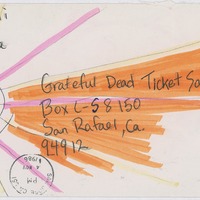 Grateful Dead Ticket Sa
Box L-S8150
San Rafael, Ca.
94912
PM